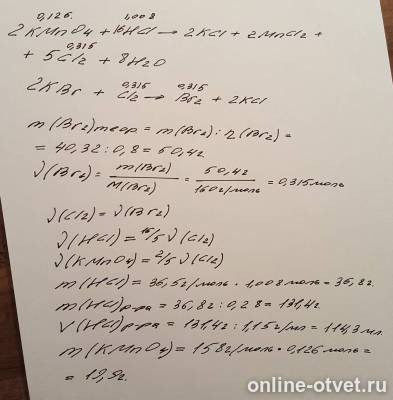 0,126. 1,008
2KMnO4 + 16HCl → 2KCl + 2MnCl2 +
0,315
+ 5Cl2 + 8H2O
0,315 0,315
2KBr + Cl2 → Br2 + 2KCl
m(Br2)теор = m(Br2) : η(Br2) =
= 40,32 : 0,8 = 50,4г
ν(Br2) = m(Br2)/M(Br2) = 50,4г/160г/моль = 0,315моль
ν(Cl2) = ν(Br2)
ν(HCl) = 16/5 ν(Cl2)
ν(KMnO4) = 2/5 ν(Cl2)
m(HCl) = 36,5г/моль · 1,008моль = 36,8г.
m(HCl)р-ра = 36,8г : 0,28 = 131,4г
V(HCl)р-ра = 131,4г : 1,15г/мл = 114,3мл.
m(KMnO4) = 158г/моль · 0,126моль =
= 19,9г.
online-otvet.ru